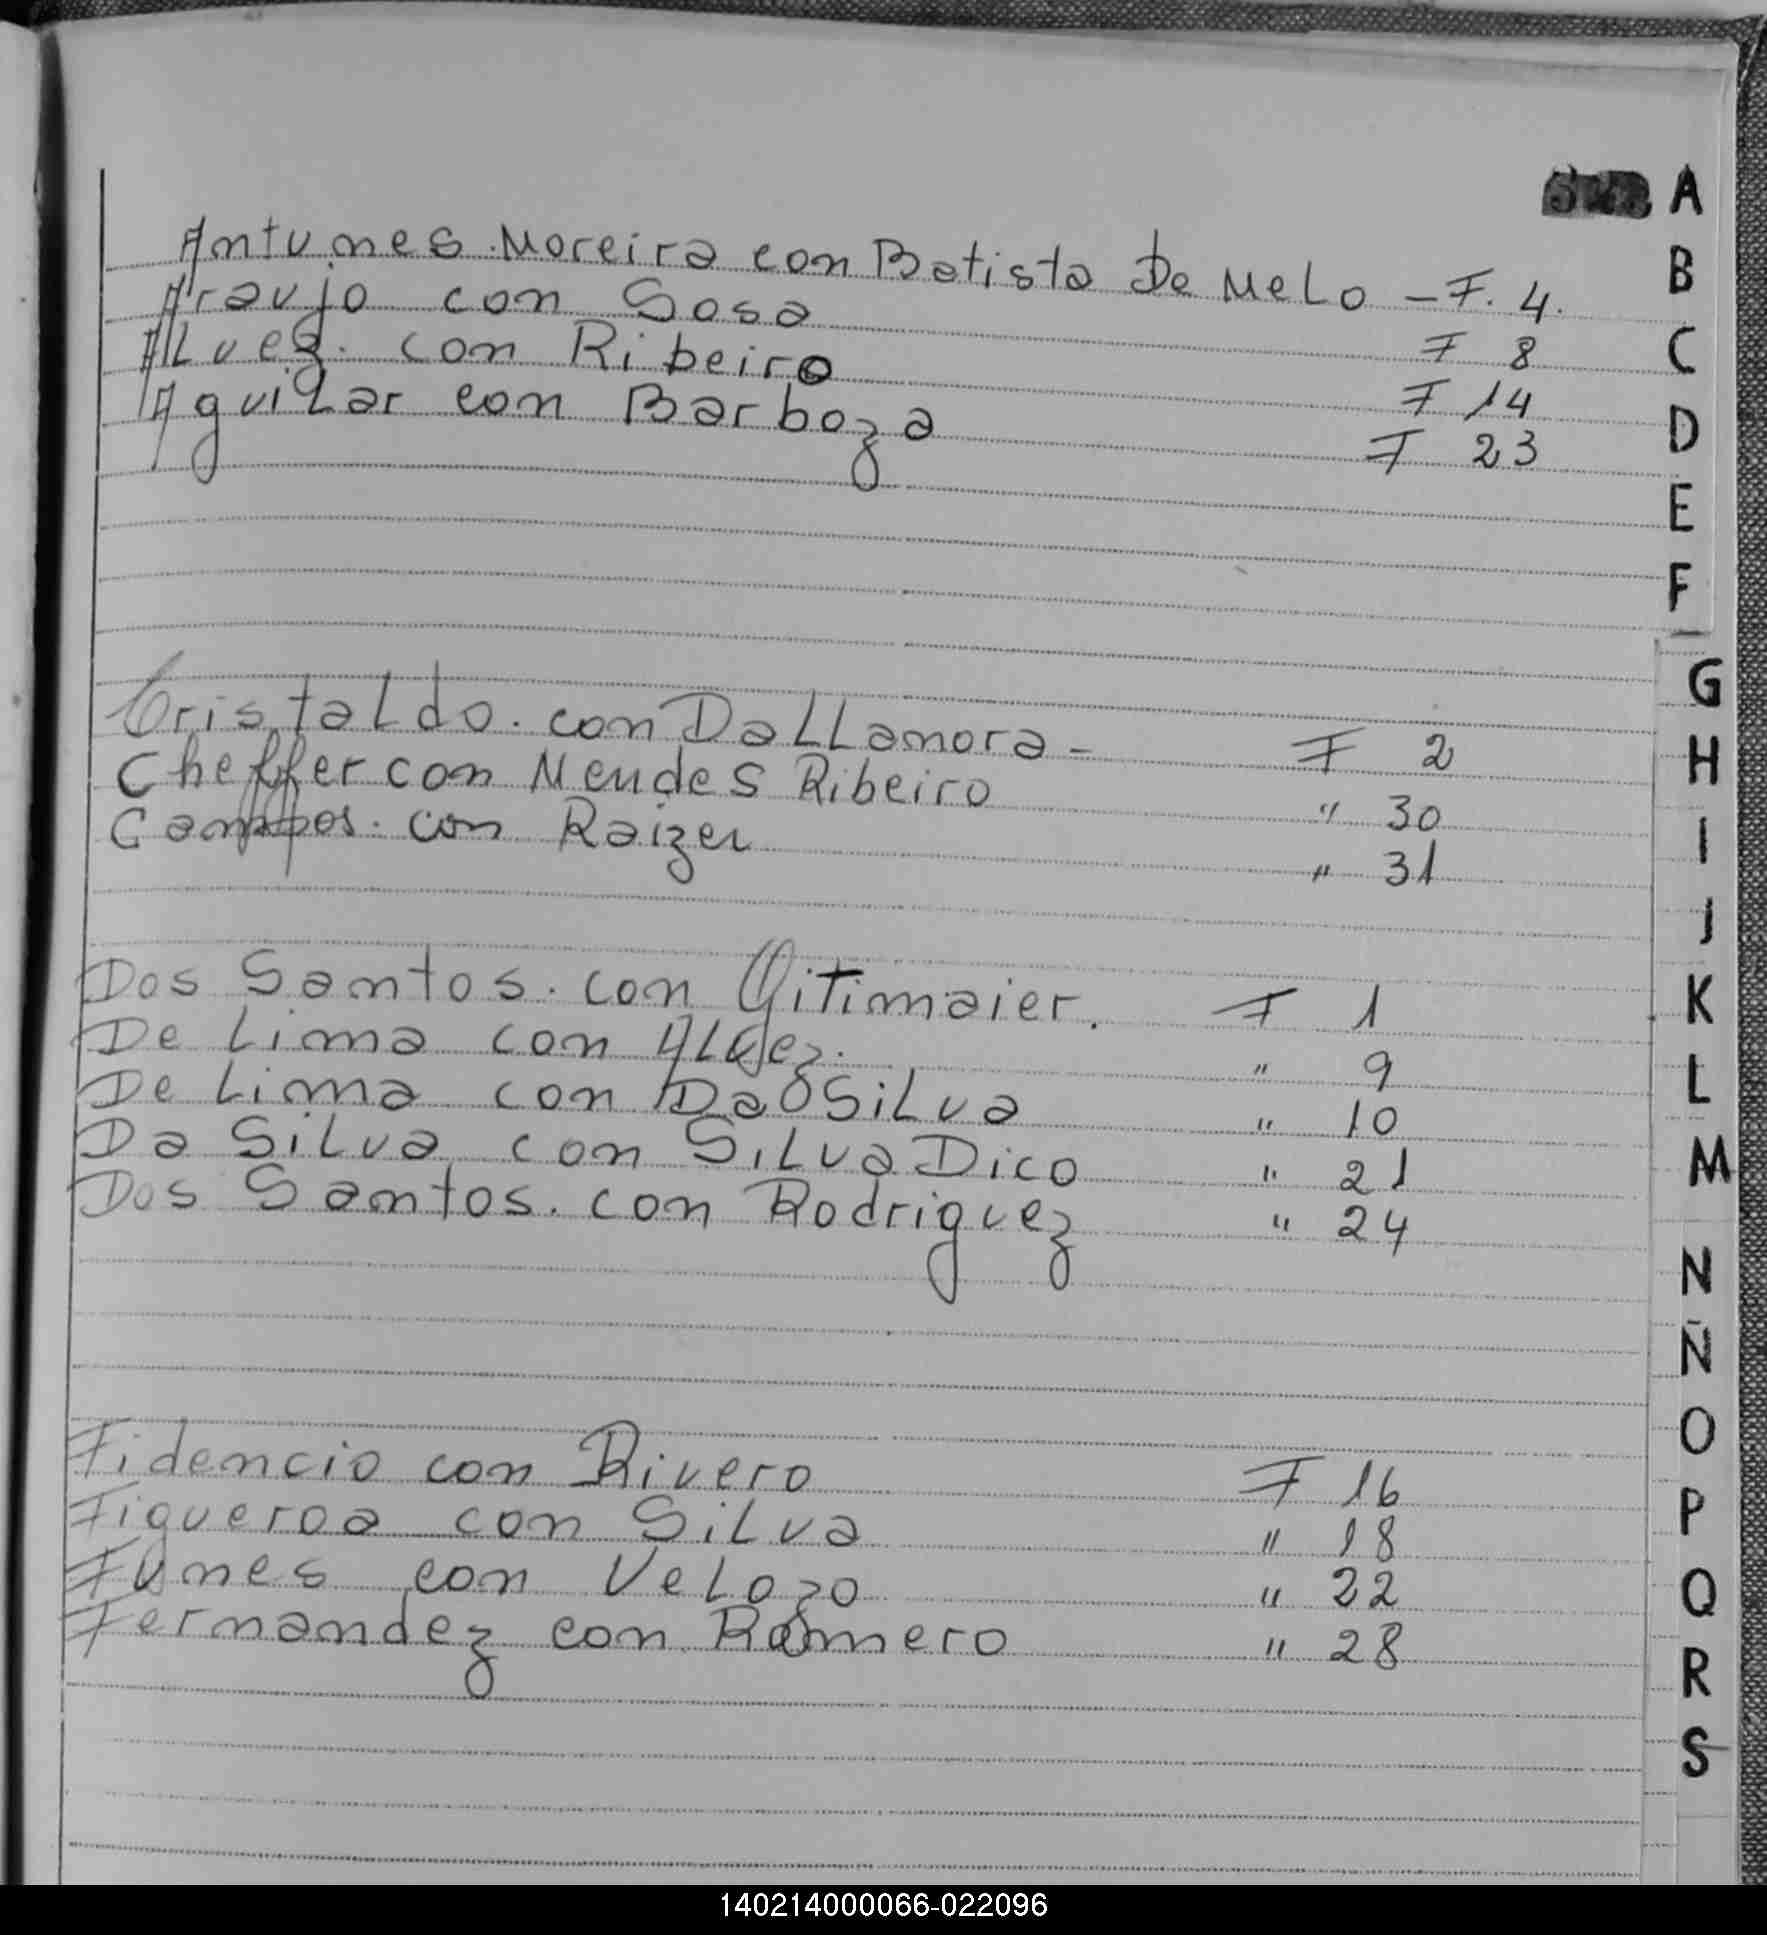 A
Antunes Moreira con Batista De Melo - F. 4.
B
Araujo con Sosa F 8
C
Alvez. con Ribeiro F 14
D
Aguilar con Barboza F 23
E
F
G
Cristaldo. con Dallanora - F 2
H
Cheffer con Mendes Ribeiro " 30
I
Campos. con Raizer " 31
J
K
Dos Santos. con F 1
L
De Lima con Alvez. " 9
De Lima con Da Silva " 10
M
Da Silva con Silva Dico " 21
Dos Santos. con Rodriguez " 24
N
Ñ
O
Fidencio con Rivero F 16
P
Figueroa con Silva " 18
Q
Funes con Velozo " 22
R
Fernandez con Romero " 28
S
140214000066-022096